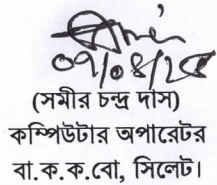 (সমীর চন্দ্র দাস)
কম্পিউটার অপারেটর
বা.ক.ক.বো, সিলেট।